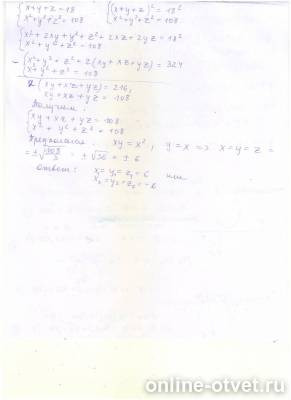 {x+y+z=18 {(x+y+z)²=18²
{x²+y²+z²=108 {x²+y²+z²=108
{x²+2xy+y²+z²+2xz+2yz=18²
{x²+y²+z²=108
-{x²+y²+z²+2(xy+xz+yz)=324
{x²+y²+z²=108
2(xy+xz+yz)=216,
xy+xz+yz=108
Получим:
{xy+xz+yz=108
{x²+y²+z²=108
xy=x², y=x => x=y=z=
=±√108/3 = ±√36 = ±6
Ответ: x₁=y₁=z₁=6 или
x₂=y₂=z₂=-6
online-otvet.ru